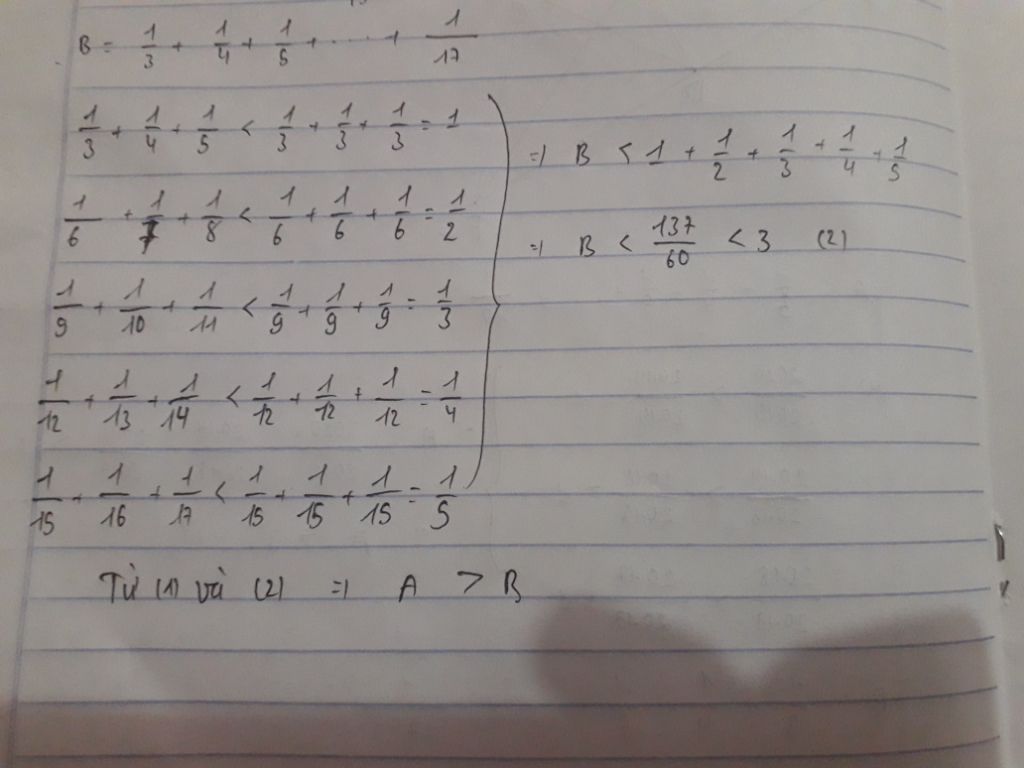 B = 1/3 + 1/4 + 1/5 + ..... + 1/17
1/3 + 1/4 + 1/5 < 1/3 + 1/3 + 1/3 = 1
1/6 + 1/7 + 1/8 < 1/6 + 1/6 + 1/6 = 1/2
1/9 + 1/10 + 1/11 < 1/9 + 1/9 + 1/9 = 1/3
1/12 + 1/13 + 1/14 < 1/12 + 1/12 + 1/12 = 1/4
1/15 + 1/16 + 1/17 < 1/15 + 1/15 + 1/15 = 1/5
=) B < 1 + 1/2 + 1/3 + 1/4 + 1/5
=) B < 137/60 < 3 (2)
Từ (1) và (2) =) A > B